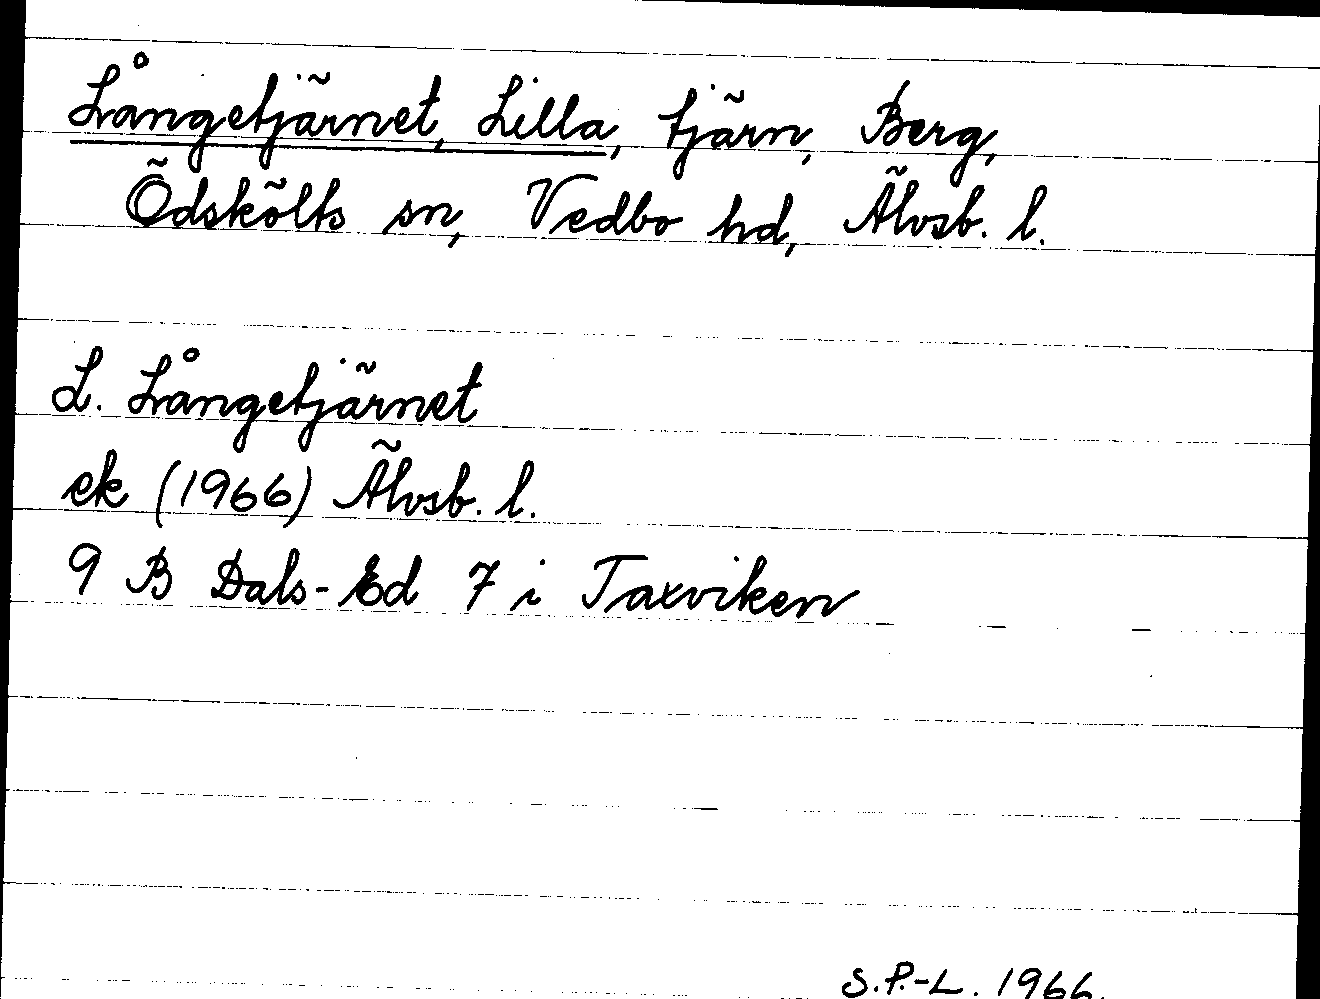 Långetjärnet, Lilla, tjärn, Berg,
Ödskölts sn, Vedbo hd, Älvsb. l.
L. Långetjärnet
ek (1966) Älvsb. l.
9 B Dals-Ed 7 i Taxviken
S.P.-L. 1966.